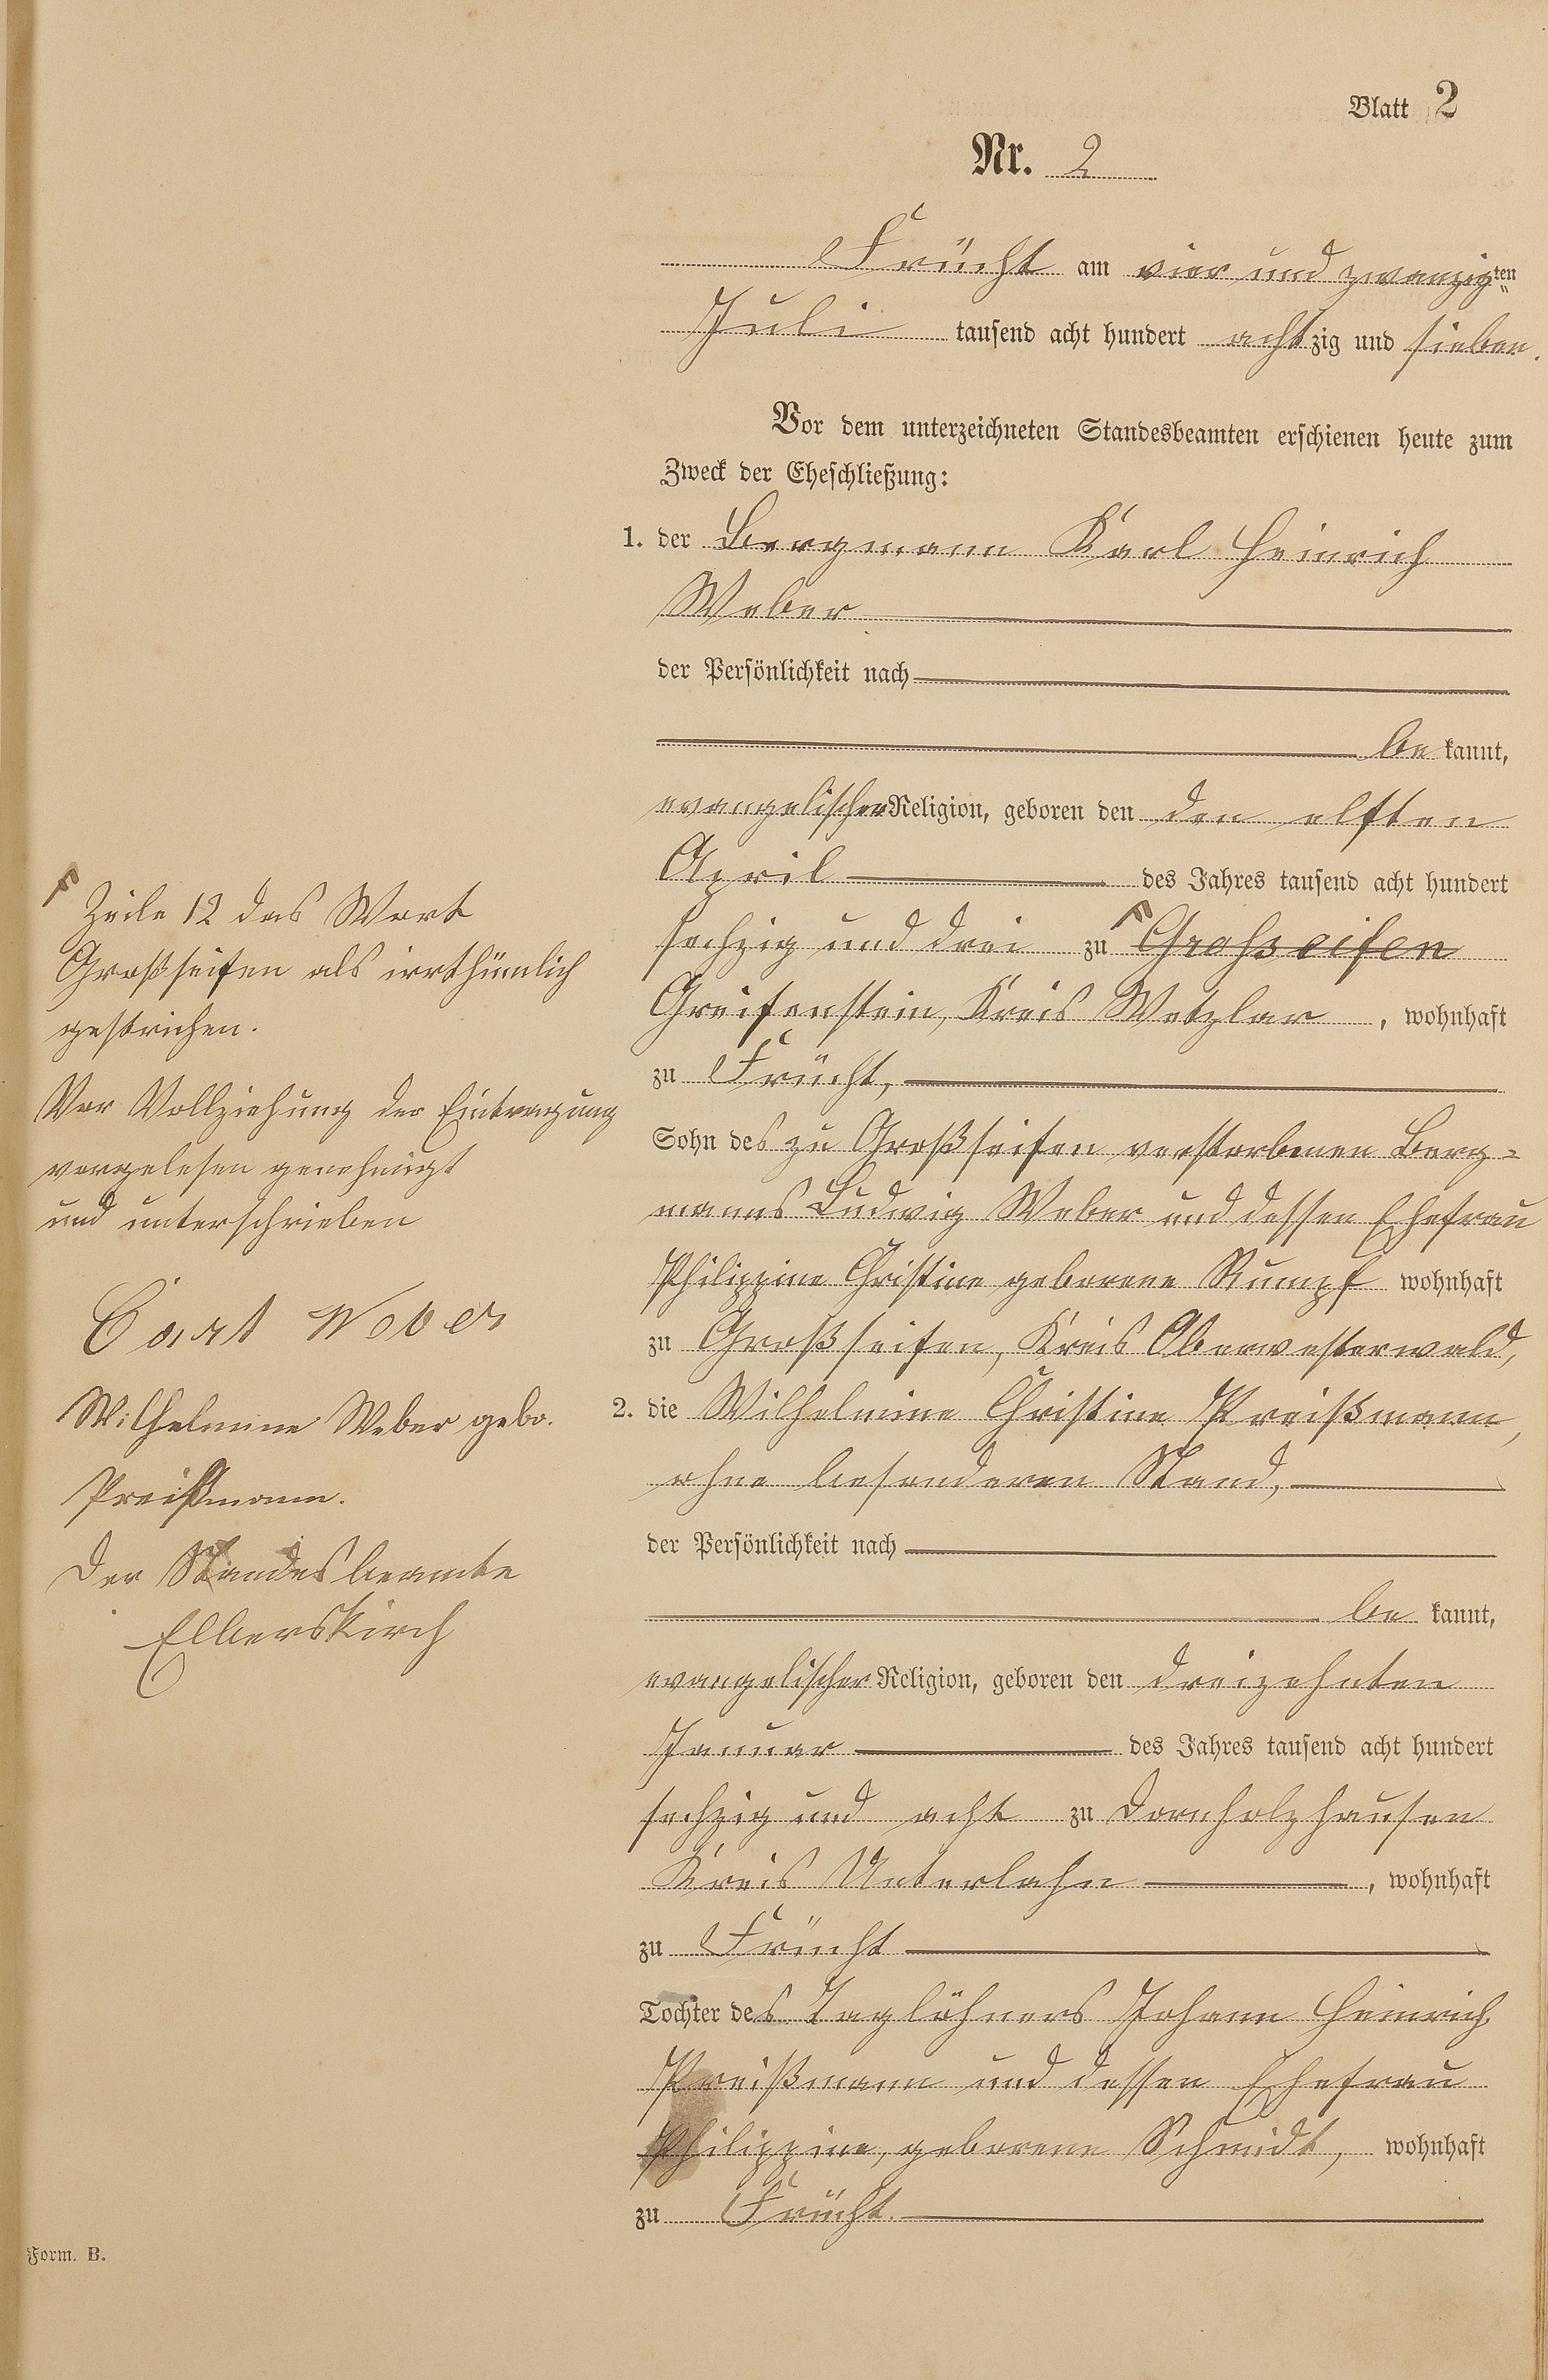 Blatt 2
Nr. 2
Frücht am vier und zwanzigten
Juli tausend acht hundert achtzig und sieben.
Vor dem unterzeichneten Standesbeamten erschienen heute zum
Zweck der Eheschließung:
1. der Bergmann Karl Heinrich
Weber
der Persönlichkeit nach
be kannt,
evangelischer Religion, geboren den den elften
April des Jahres tausend acht hundert
sechzig und drei zu Großseifen
Greifenstein, Kreis Wetzlar, wohnhaft
zu Frücht,
Sohn des zu Großseifen verstorbenen Berg=
manns Ludwig Weber und dessen Ehefrau
Philippine Christine geborene Rumpf wohnhaft
zu Großseifen, Kreis Oberwesterwald,
2. die Wilhelmine Christine Preißmann,
ohne besonderen Stand,
der Persönlichkeit nach
be kannt,
evangelischer Religion, geboren den dreizehnten
Januar des Jahres tausend acht hundert
sechzig und acht zu Dornholzhausen
Kreis Unterlahn, wohnhaft
zu Frücht
Tochter des Taglöhners Johann Heinrich
Preißmann und dessen Ehefrau
Philippine, geborene Schmidt, wohnhaft
zu Frücht.
F Zeile 12 das Wort
Großseifen als irrthümlich
gestrichen.
Vor Vollziehung der Eintragung
vorgelesen genehmigt
und unterschrieben
Carl Weber
Wilhelmine Weber gebo.
Preißmann.
Der Standesbeamte
Elberskirch
Form. B.